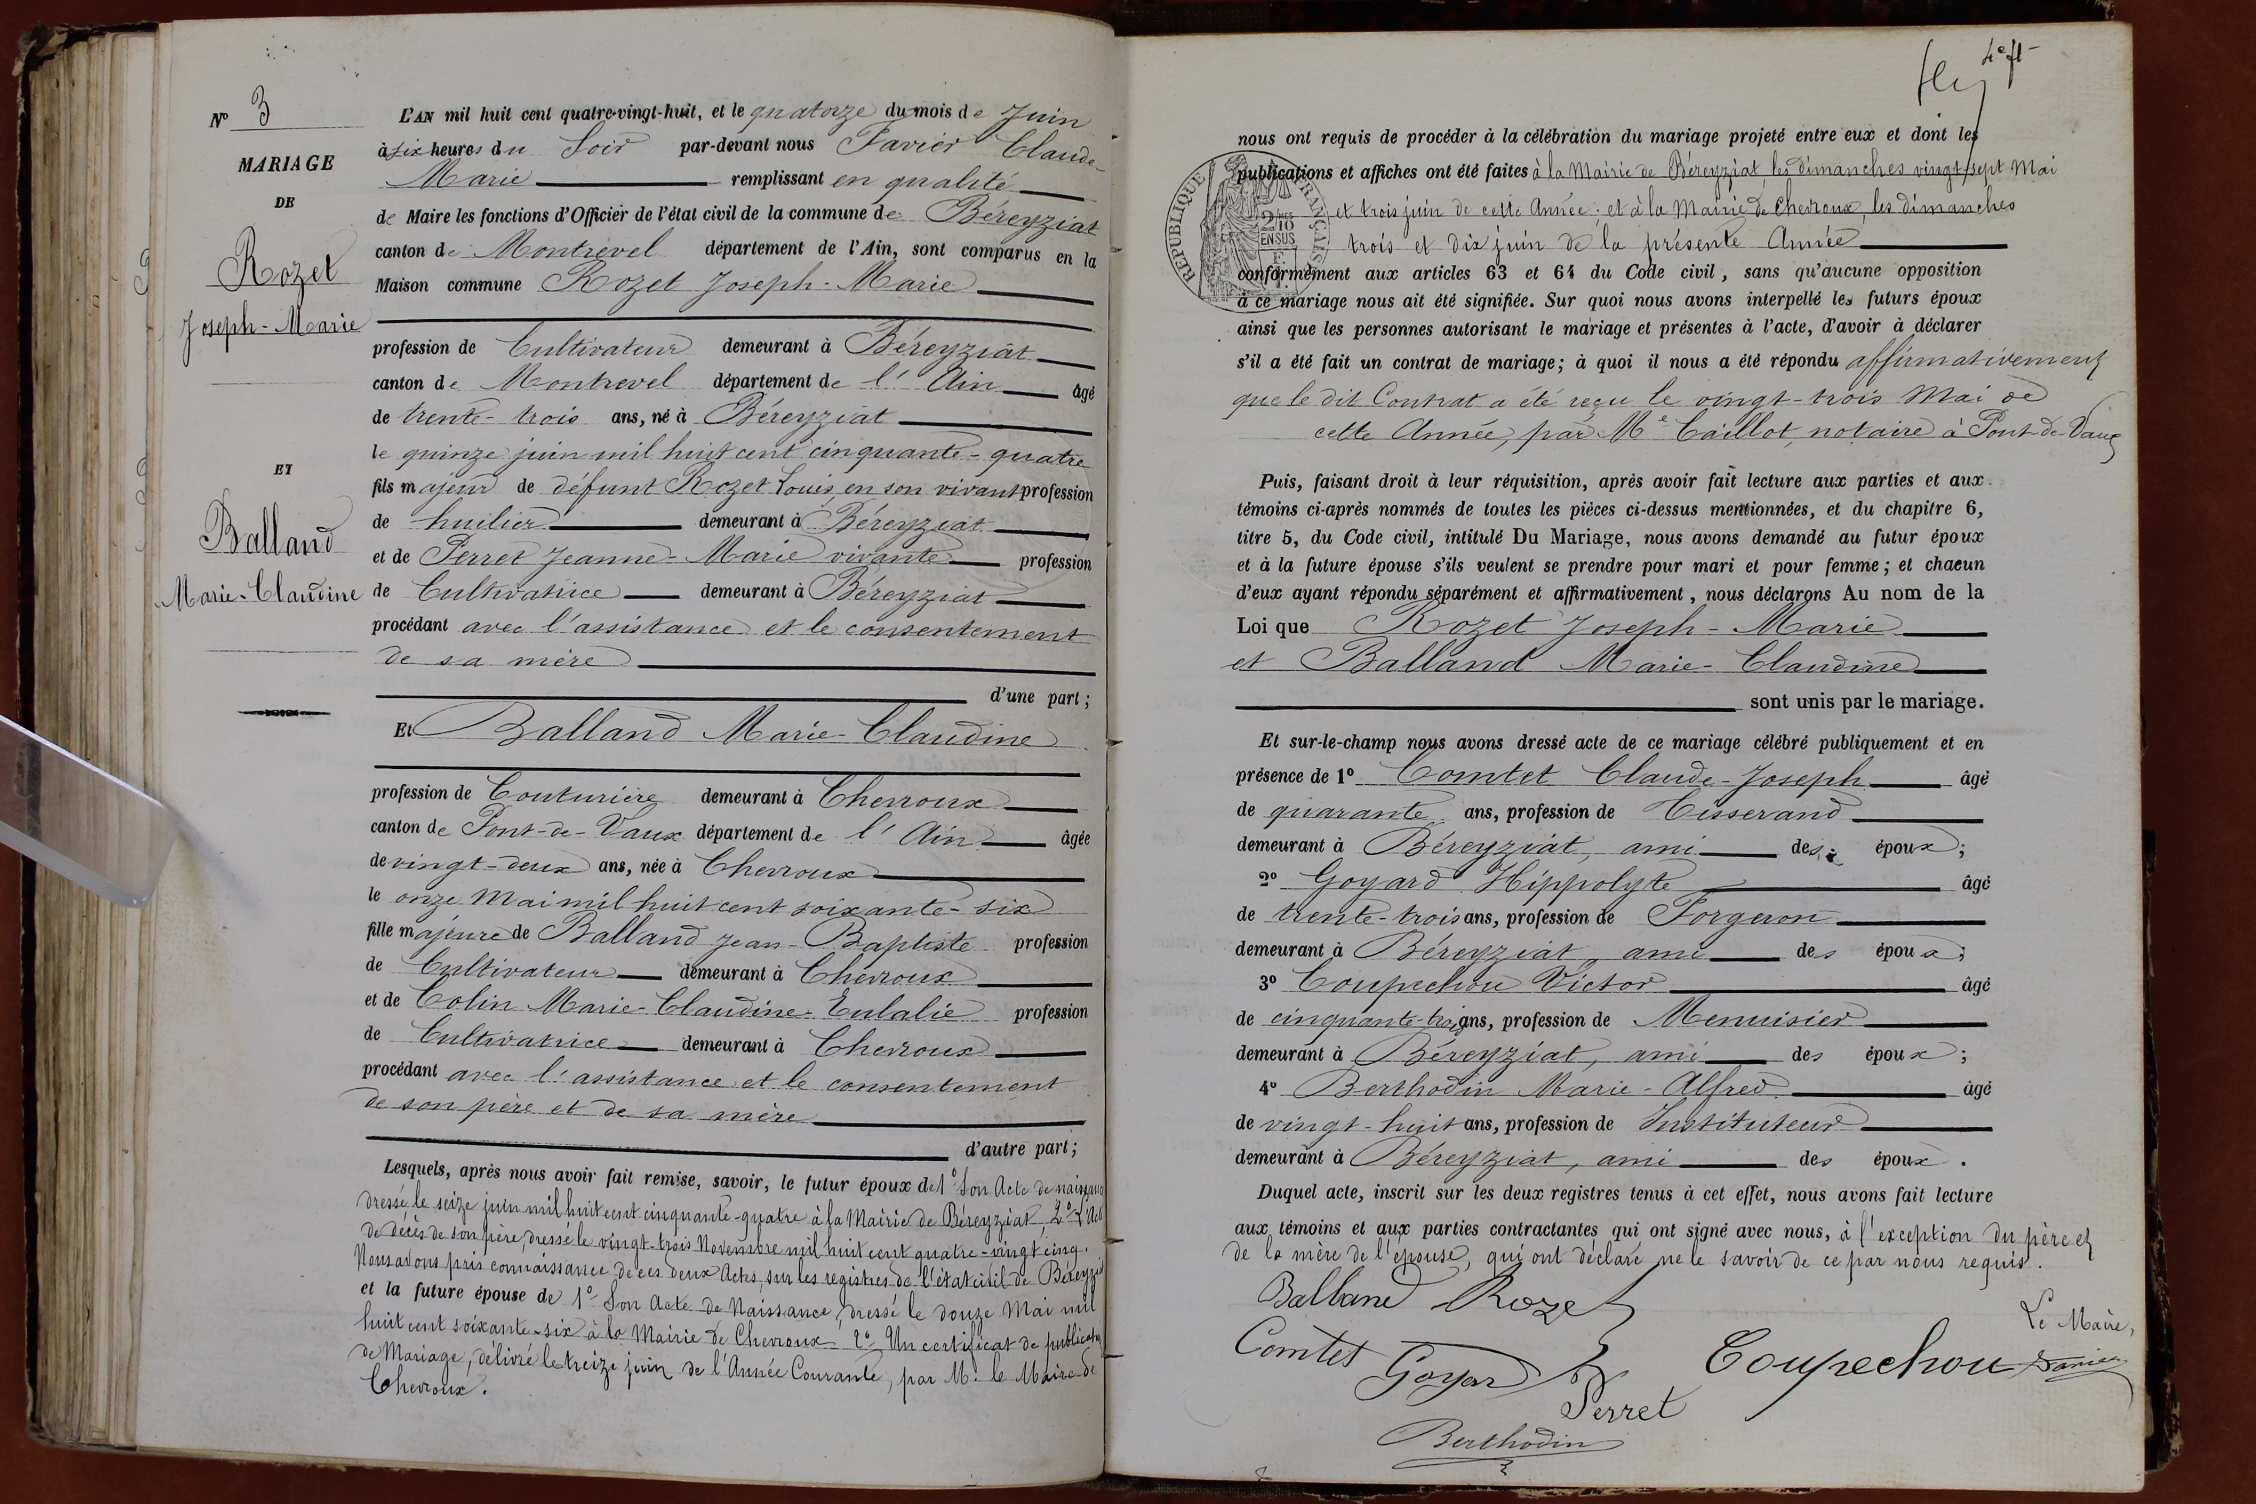 Nº 3
MARIAGE
DE
Rozet
Joseph-Marie
ET
Balland
Marie-Claudine
L'AN mil huit cent quatre-vingt-huit, et le quatorze du mois de Juin
à six heures du Soir par-devant nous Favier Claude-
Marie remplissant en qualité
de Maire les fonctions d'Officier de l'état civil de la commune de Béreyziat
canton de Montrevel département de l'Ain, sont comparus en la
Maison commune Rozet Joseph-Marie
profession de Cultivateur demeurant à Béreyziat
canton de Montrevel département de l'Ain âgé
de trente-trois ans, né à Béreyziat
le quinze juin mil huit cent cinquante-quatre
fils majeur de défunt Rozet Louis, en son vivant profession
de huilier demeurant à Béreyziat
et de Perret Jeanne-Marie vivante profession
de Cultivatrice demeurant à Béreyziat
procédant avec l'assistance et le consentement
de sa mère
d'une part;
Et Balland Marie-Claudine
profession de Couturière demeurant à Chevroux
canton de Pont-de-Vaux département de l'Ain âgée
de vingt-deux ans, née à Chevroux
le onze Mai mil huit cent soixante-six
fille majeure de Balland Jean-Baptiste profession
de Cultivateur demeurant à Chevroux
et de Colin Marie-Claudine-Eulalie profession
de Cultivatrice demeurant à Chevroux
procédant avec l'assistance et le consentement
de son père et de sa mère
d'autre part;
Lesquels, après nous avoir fait remise, savoir, le futur époux de 1º Son Acte de naissance
dressé le seize juin mil huit cent cinquante-quatre à la Mairie de Béreyziat, 2º l'Acte
de décès de son père, dressé le vingt-trois Novembre mil huit cent quatre-vingt cinq.
Nous avons pris connaissance de ces deux Actes, sur les registres de l'état civil de Béreyziat
et la future épouse de 1º Son Acte de Naissance, dressé le douze Mai mil
huit cent soixante-six à la Mairie de Chevroux 2º Un certificat de publication
de Mariage, délivré le treize juin de l'Année Courante, par M. le Maire de
Chevroux.
4e ft
nous ont requis de procéder à la célébration du mariage projeté entre eux et dont les
publications et affiches ont été faites à la Mairie de Béreyziat, les dimanches vingt-sept Mai
et trois juin de cette Année; et à la Mairie de Chevroux, les dimanches
trois et dix juin de la présente Année
RÉPUBLIQUE FRANÇAISE
2/10 EN SUS
conformément aux articles 63 et 64 du Code civil, sans qu'aucune opposition
à ce mariage nous ait été signifiée. Sur quoi nous avons interpellé les futurs époux
ainsi que les personnes autorisant le mariage et présentes à l'acte, d'avoir à déclarer
s'il a été fait un contrat de mariage; à quoi il nous a été répondu affirmativement
que le dit Contrat a été reçu le vingt-trois Mai de
cette Année, par Me Caillot, notaire à Pont-de-Vaux
Puis, faisant droit à leur réquisition, après avoir fait lecture aux parties et aux
témoins ci-après nommés de toutes les pièces ci-dessus mentionnées, et du chapitre 6,
titre 5, du Code civil, intitulé Du Mariage, nous avons demandé au futur époux
et à la future épouse s'ils veulent se prendre pour mari et pour femme; et chacun
d'eux ayant répondu séparément et affirmativement, nous déclarons Au nom de la
Loi que Rozet Joseph-Marie
et Balland Marie-Claudine
sont unis par le mariage.
Et sur-le-champ nous avons dressé acte de ce mariage célébré publiquement et en
présence de 1º Comtet Claude-Joseph âgé
de quarante ans, profession de Tisserand
demeurant à Béreyziat, ami des époux;
2º Goyard Hippolyte âgé
de trente-trois ans, profession de Forgeron
demeurant à Béreyziat, ami des époux;
3º Coupechou Victor âgé
de cinquante-trois ans, profession de Menuisier
demeurant à Béreyziat, ami des époux;
4º Berthodin Marie-Alfred âgé
de vingt-huit ans, profession de Instituteur
demeurant à Béreyziat, ami des époux.
Duquel acte, inscrit sur les deux registres tenus à cet effet, nous avons fait lecture
aux témoins et aux parties contractantes qui ont signé avec nous, à l'exception du père et
de la mère de l'épouse, qui ont déclaré ne le savoir de ce par nous requis.
Balland Rozet
Le Maire,
Comtet Goyard Coupechou Favier
Perret
Berthodin